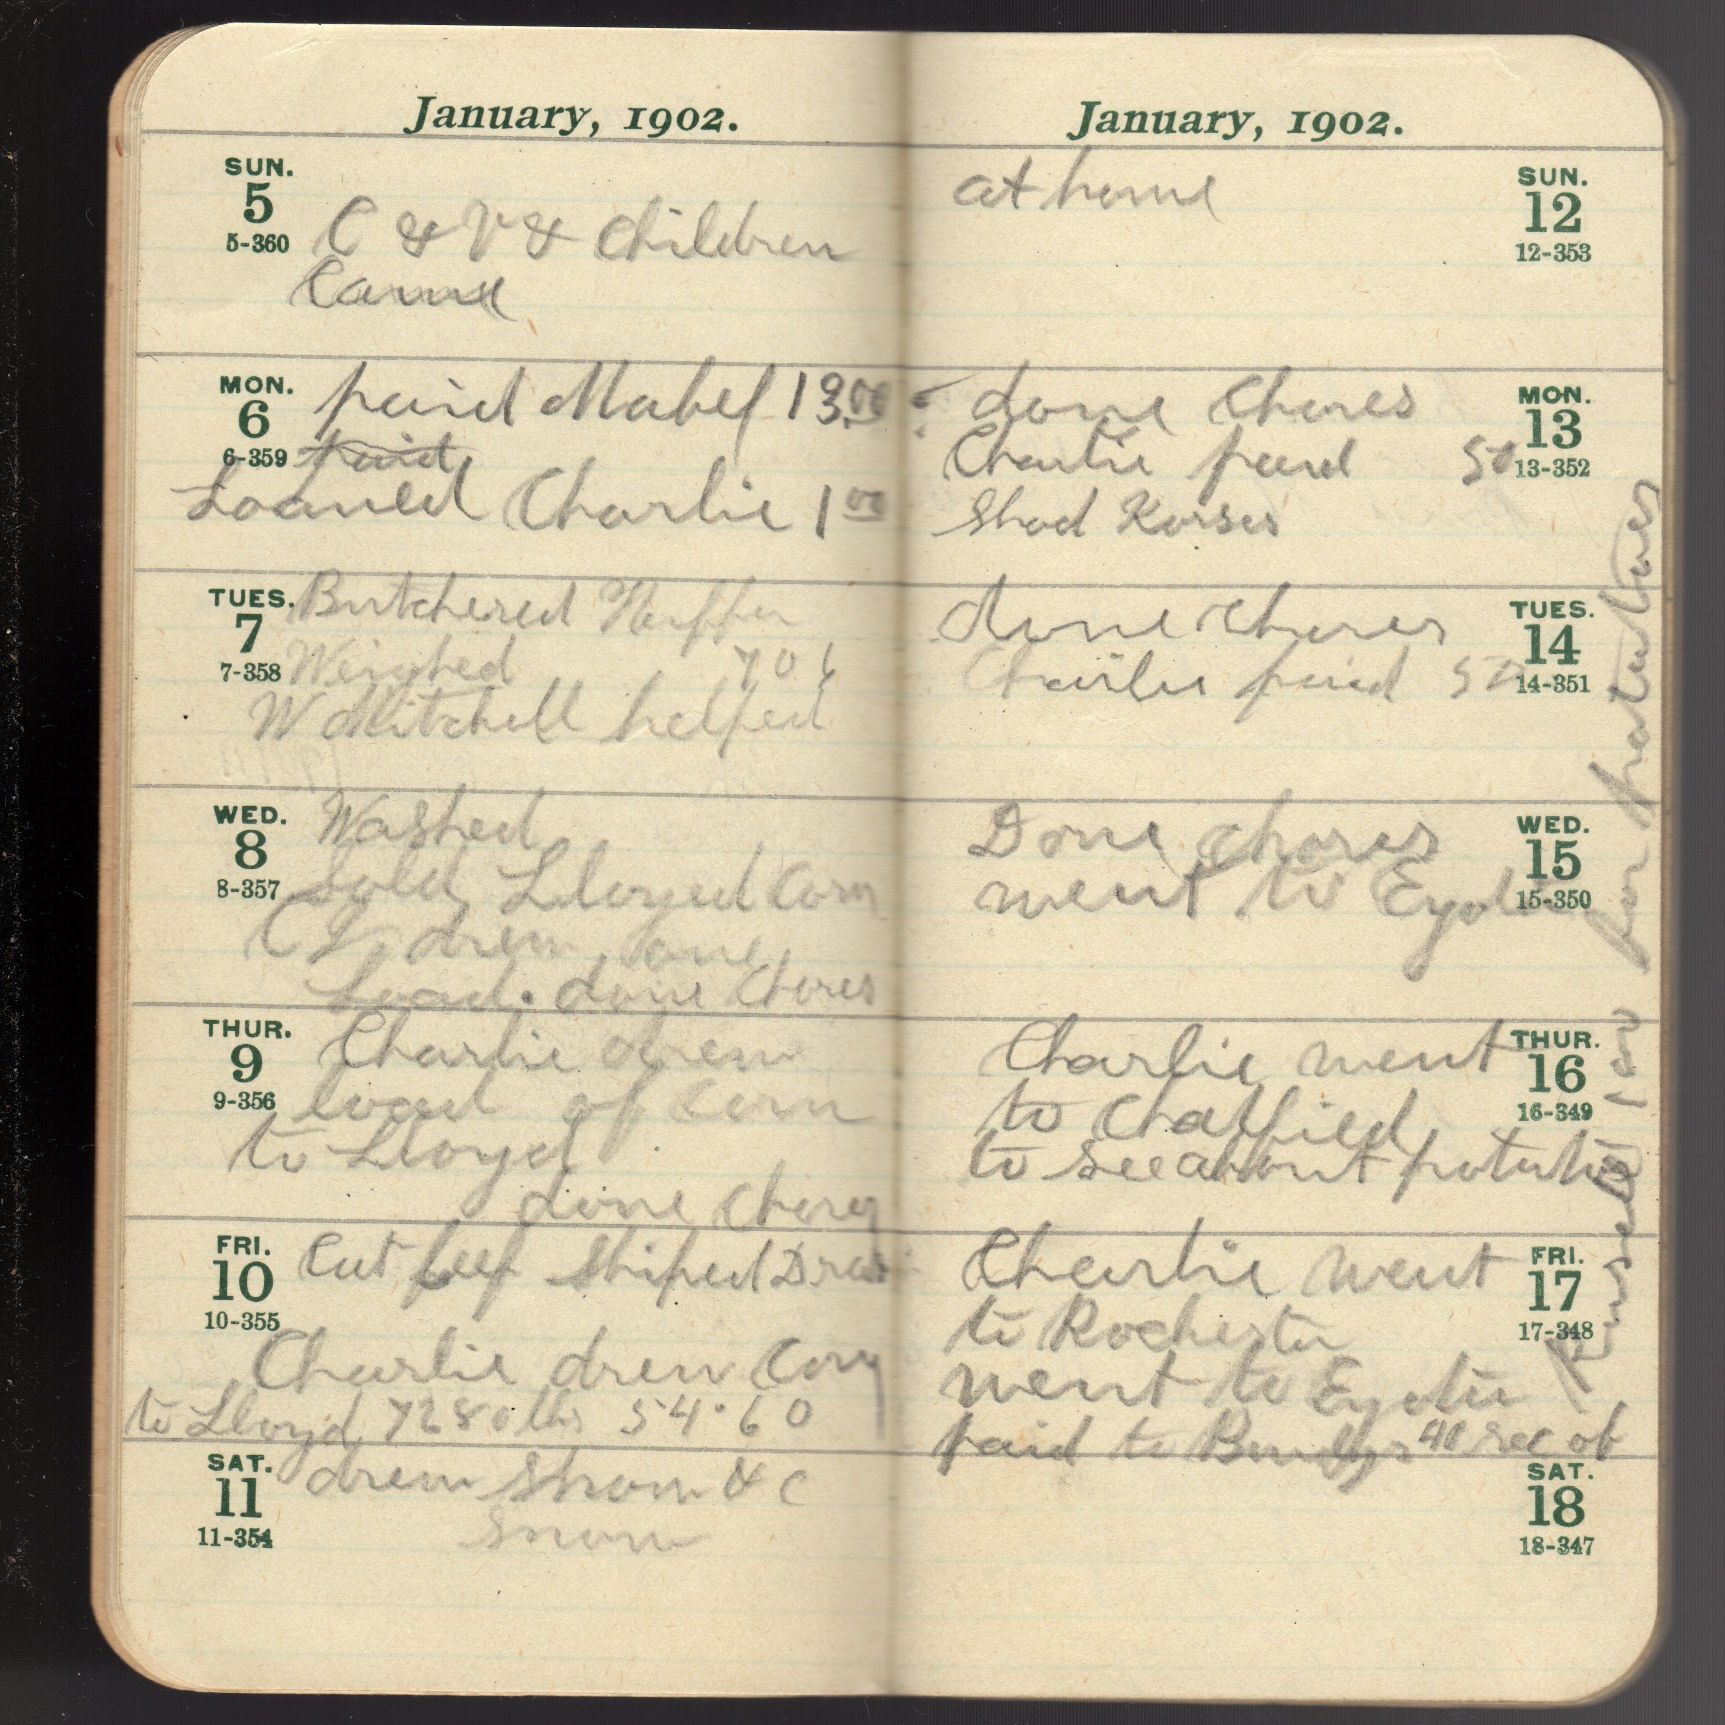 January, 1902.
SUN.
5
5-360
C & V & Children
Came
MON.
6
6-359
paid Mabel 13.00
paid
Loaned Charlie 1 00
TUES.
7
7-358
Butchered Heffer
Weighed 706
W Mitchell helped
WED.
8
8-357
Washed
Sold Lloyed Corn
C L drew one
Load. done Chores
THUR.
9
9-356
Charlie drew
load of Corn
to Lloyd
done Chores
FRI.
10
10-355
Cut beef Shiped
Charlie drew Corn
to Lloyd 7280 lbs 54.60
SAT.
11
11-354
drew Straw & C
Snow
January, 1902.
SUN.
12
12-353
at home
MON.
13
13-352
done Chores
Charlie paid 50
Shod Horses
TUES.
14
14-351
done Chores
Charlie paid 50
WED.
15
15-350
Done Chores
went to Eyota
THUR.
16
16-349
Charlie went
to Chatfield
to see about potatoes
FRI.
17
17-348
Charlie went
to Rochester
went to Eyota
paid to 40 rec of
SAT.
18
18-347
100 for potatoes